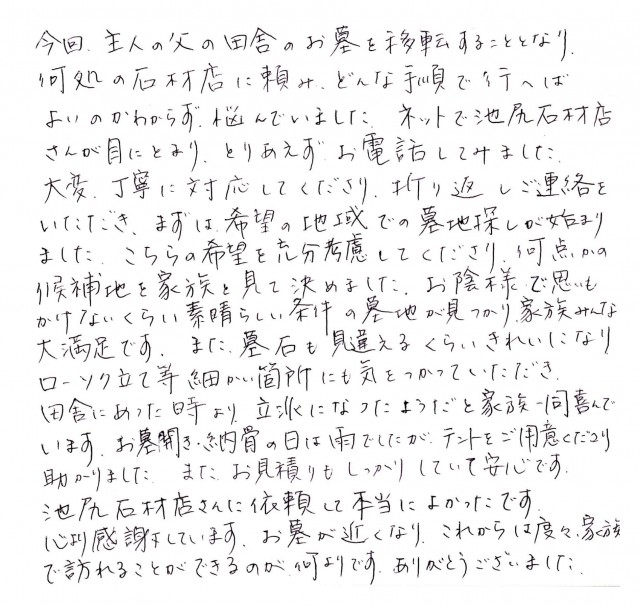 今回、主人の父の田舎のお墓を移転することとなり、
何処の石材店に頼み、どんな手順で行へば
よいのかわからず、悩んでいました。ネットで池尻石材店
さんが目にとまり、とりあえず、お電話してみました。
大変、丁寧に対応してくださり、折り返しご連絡を
いただき、まずは、希望の地域での墓地探しが始まり
ました。こちらの希望を充分考慮してくださり、何点かの
候補地を家族と見て決めました。お陰様で思いも
かけないくらい素晴らしい条件の墓地が見つかり、家族みんな
大満足です。また、墓石も見違えるくらいきれいになり
ローソク立て等細かい箇所にも気をつかっていただき、
田舎にあった時より、立派になったようだと家族一同喜んで
います。お墓開き・納骨の日は雨でしたが、テントをご用意くださり
助かりました。また、お見積りもしっかりしていて安心です。
池尻石材店さんに依頼して本当によかったです。
心より感謝しています。お墓が近くなり、これからは度々、家族
で訪れることができるのが、何よりです。ありがとうございました。